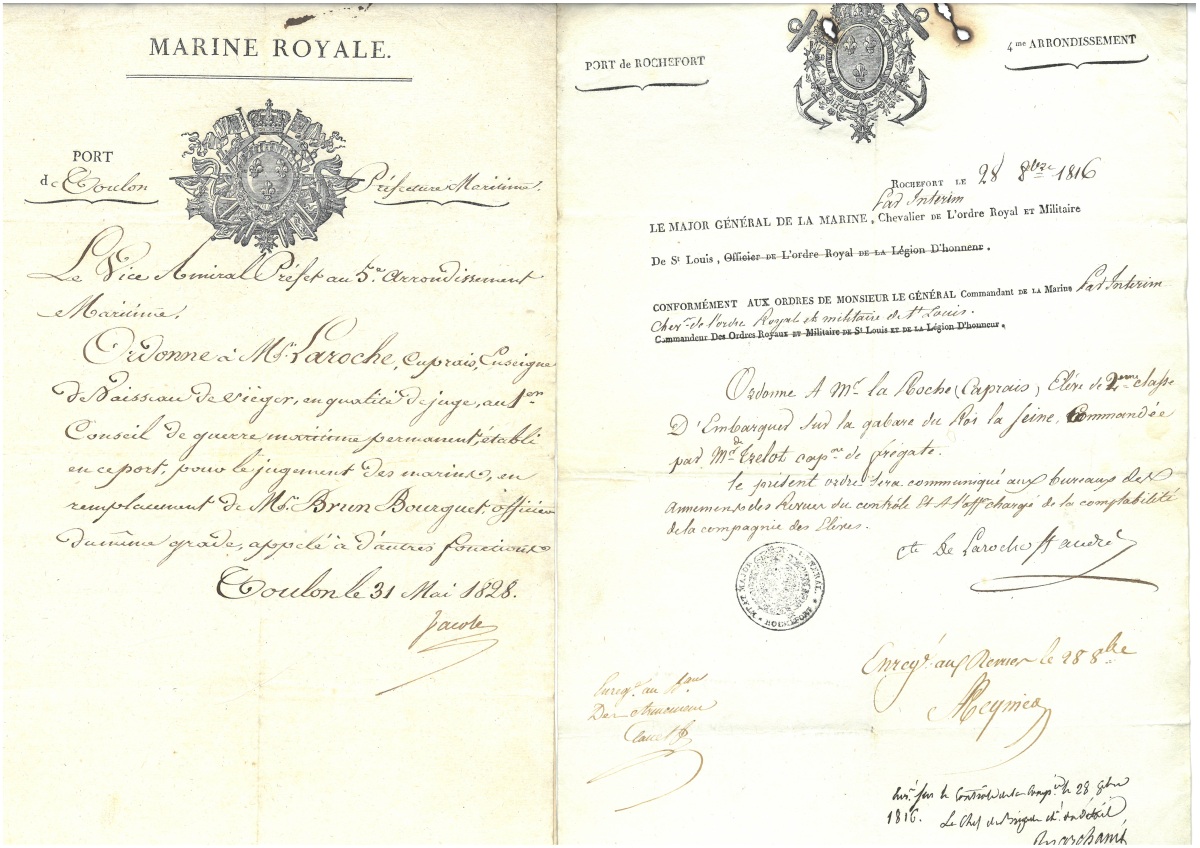 MARINE ROYALE.
PORT
de Toulon
Préfecture Maritime.
Le Vice Amiral Préfet au 5e. Arrondissement
Maritime.
Ordonne à Mr. Laroche, Caprais, Enseigne
de Vaisseau de siéger, en qualité de juge, au 1er
Conseil de guerre maritime permanent, établi
en ce port, pour le jugement des marins, en
remplacement de Mr. Brun Bourguet, officier
du même grade, appelé à d'autres fonctions
Toulon le 31 Mai 1828.
Jacob
PORT de ROCHEFORT
4me ARRONDISSEMENT
ROCHEFORT LE 28 8bre 1816
Par Interim
LE MAJOR GÉNÉRAL DE LA MARINE, Chevalier DE L'ordre Royal ET Militaire
De St Louis, Officier DE L'ordre Royal DE LA Légion D'honneur.
CONFORMÉMENT AUX ORDRES DE MONSIEUR LE GÉNÉRAL Commandant DE LA Marine Par Interim
Cher. de l'ordre Royal et militaire de St Louis.
Commandeur Des Ordres Royaux ET Militaire DE St Louis ET DE LA Légion D'honneur.
Ordonne A Mr. la Roche (Caprais) Elève de 2eme classe
D'Embarquer sur la gabare du Roi la Seine, Commandée
par Mr de Trelot capne de frégate.
le présent ordre sera communiqué aux bureaux des
Armements des Revues du contrôle Et A l'offr chargé de la comptabilité
de la compagnie des Elèves.
cte De Laroche St andré
ETAT MAJOR GENERAL
ROCHEFORT
Enregt. au Bau
Des Armemens
Enregt. aux Revues le 28 8bre
sur le Contrôle de la Compie le 28 8bre
1816. Le Chef de Brigade
Marchant